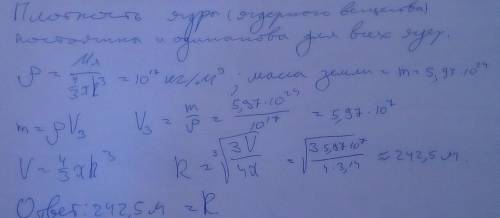 Плотность ядра (ядерного вещества)
постоянна и одинакова для всех ядер.
ρ = Mя / (4/3 πR³) = 10¹⁷ кг/м³ ; масса земли = m = 5,97·10²⁴
m = ρV₃ V₃ = m/ρ = 5,97·10²⁴ / 10¹⁷ = 5,97·10⁷
V = 4/3 πR³ R = ³√(3V / 4π) = ³√(3·5,97·10⁷ / 4·3,14) ≈ 242,5 м.
Ответ: 242,5 м = R